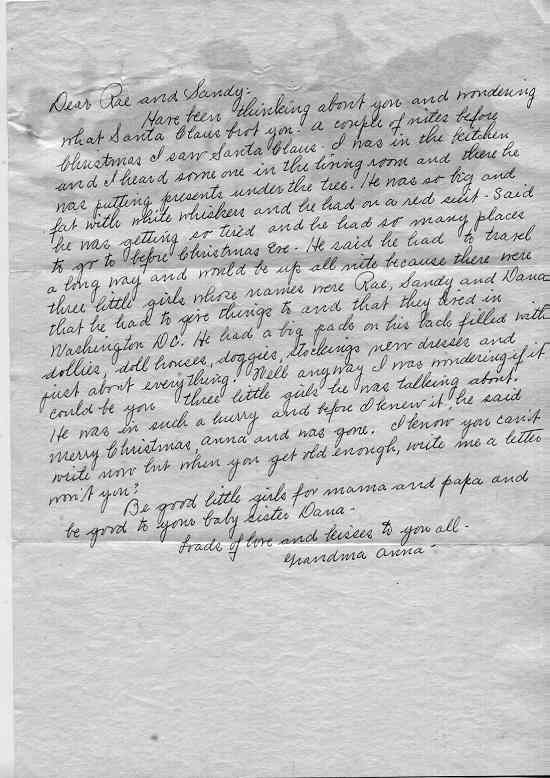 Dear Rae and Sandy-
Have been thinking about you and wondering
what Santa Claus brot you. A couple of nites before
Christmas I saw Santa Claus. I was in the kitchen
and I heard some one in the living room and there he
was putting presents under the tree. He was so big and
fat with white whiskers and he had on a red suit. Said
he was getting so tired and he had so many places
to go to before Christmas Eve. He said he had to travel
a long way and would be up all nite because there were
three little girls whose names were Rae, Sandy and Dana
that he had to give things to and that they lived in
Washington D.C. He had a big pack on his back filled with
dollies, doll houses, doggies, stockings new dresses and
just about everything. Well anyway I was wondering if it
could be you three little girls he was talking about.
He was in such a hurry and before I knew it, he said
merry Christmas, Anna and was gone. I know you can't
write now but when you get old enough, write me a letter
won't you?
Be good little girls for mama and papa and
be good to your baby sister Dana-
Loads of love and kisses to you all-
Grandma Anna-